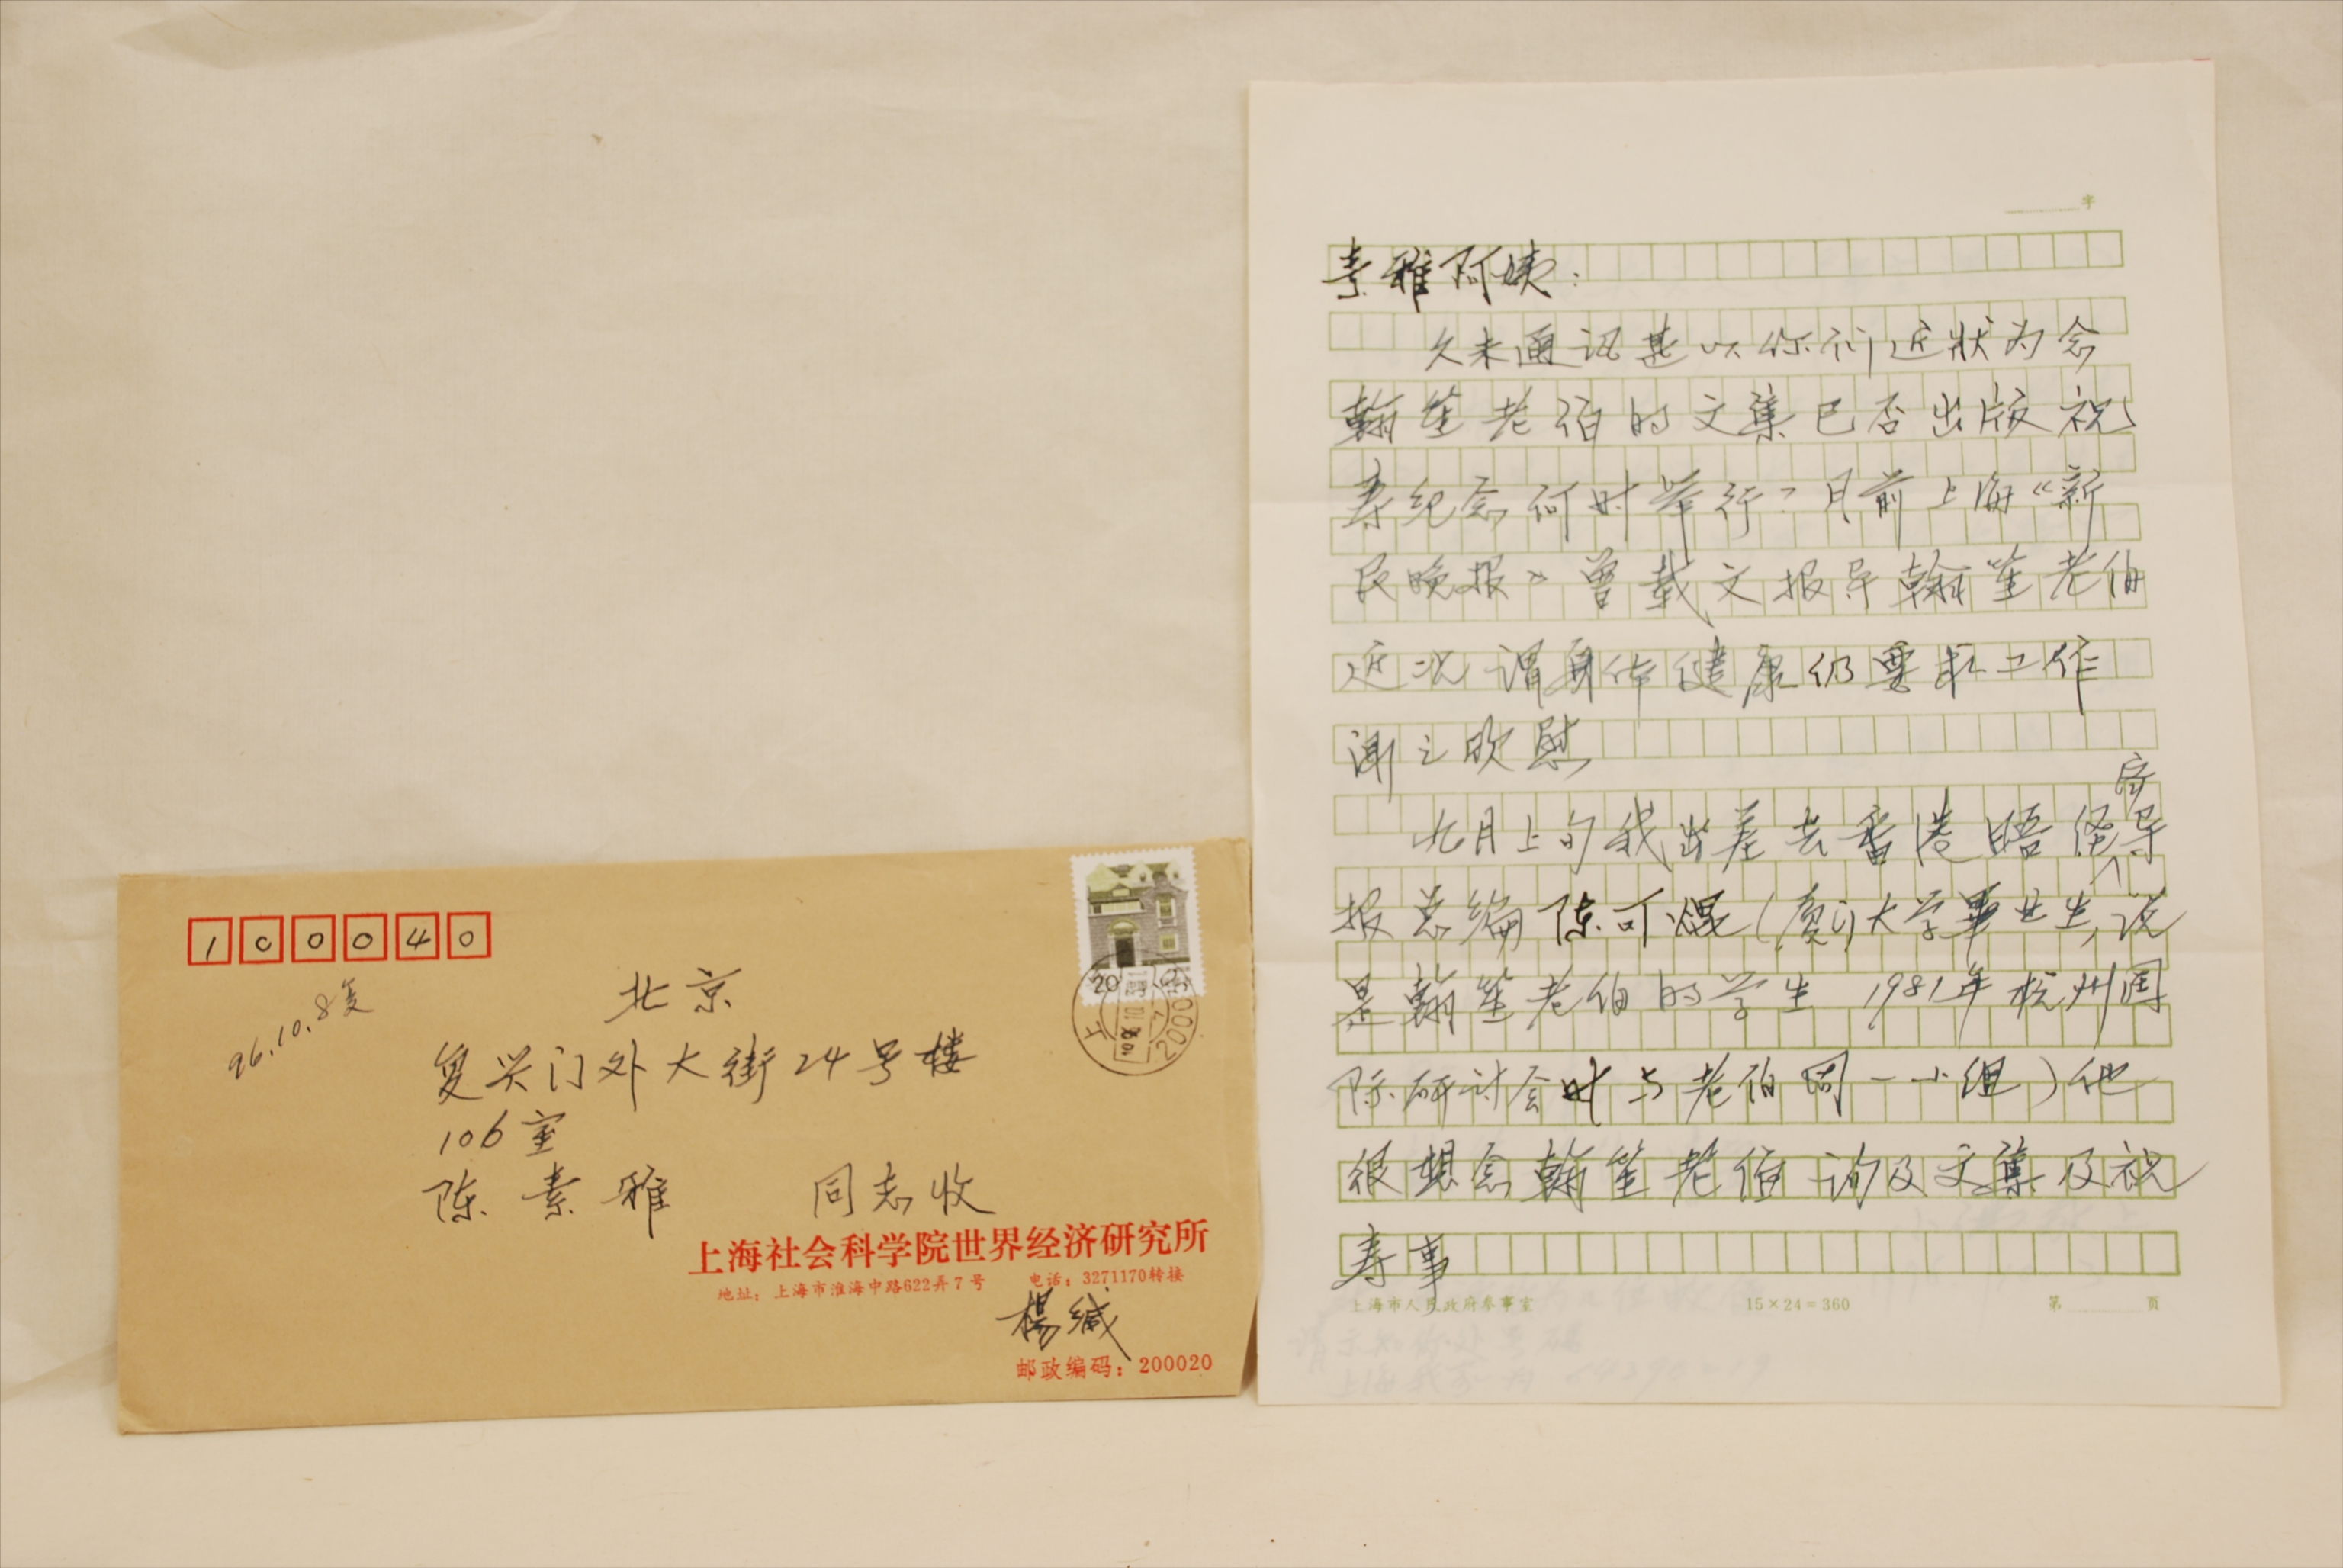 100040
96.10.8复
北京
复兴门外大街24号楼
106室
陈素雅 同志收
上海社会科学院世界经济研究所
地址：上海市淮海中路622弄7号 电话：3271170转接
楊缄
邮政编码：200020
20
字
素雅阿姨：
久未通讯甚以你们近狀为念
翰笙老伯的文集已否出版 祝
寿纪念何时举行？月前上海《新
民晚报》曾载文报导翰笙老伯
近况 谓身体健康仍要求工作
闻之欣慰
九月上旬我出差去香港晤经济导
报总编陈可焜（厦门大学畢业生，说
是翰笙老伯的学生 1981年杭州国
际研讨会时与老伯同一小组）他
很想念翰笙老伯 询及文集及祝
寿事
上海市人民政府参事室 15×24=360 第 页